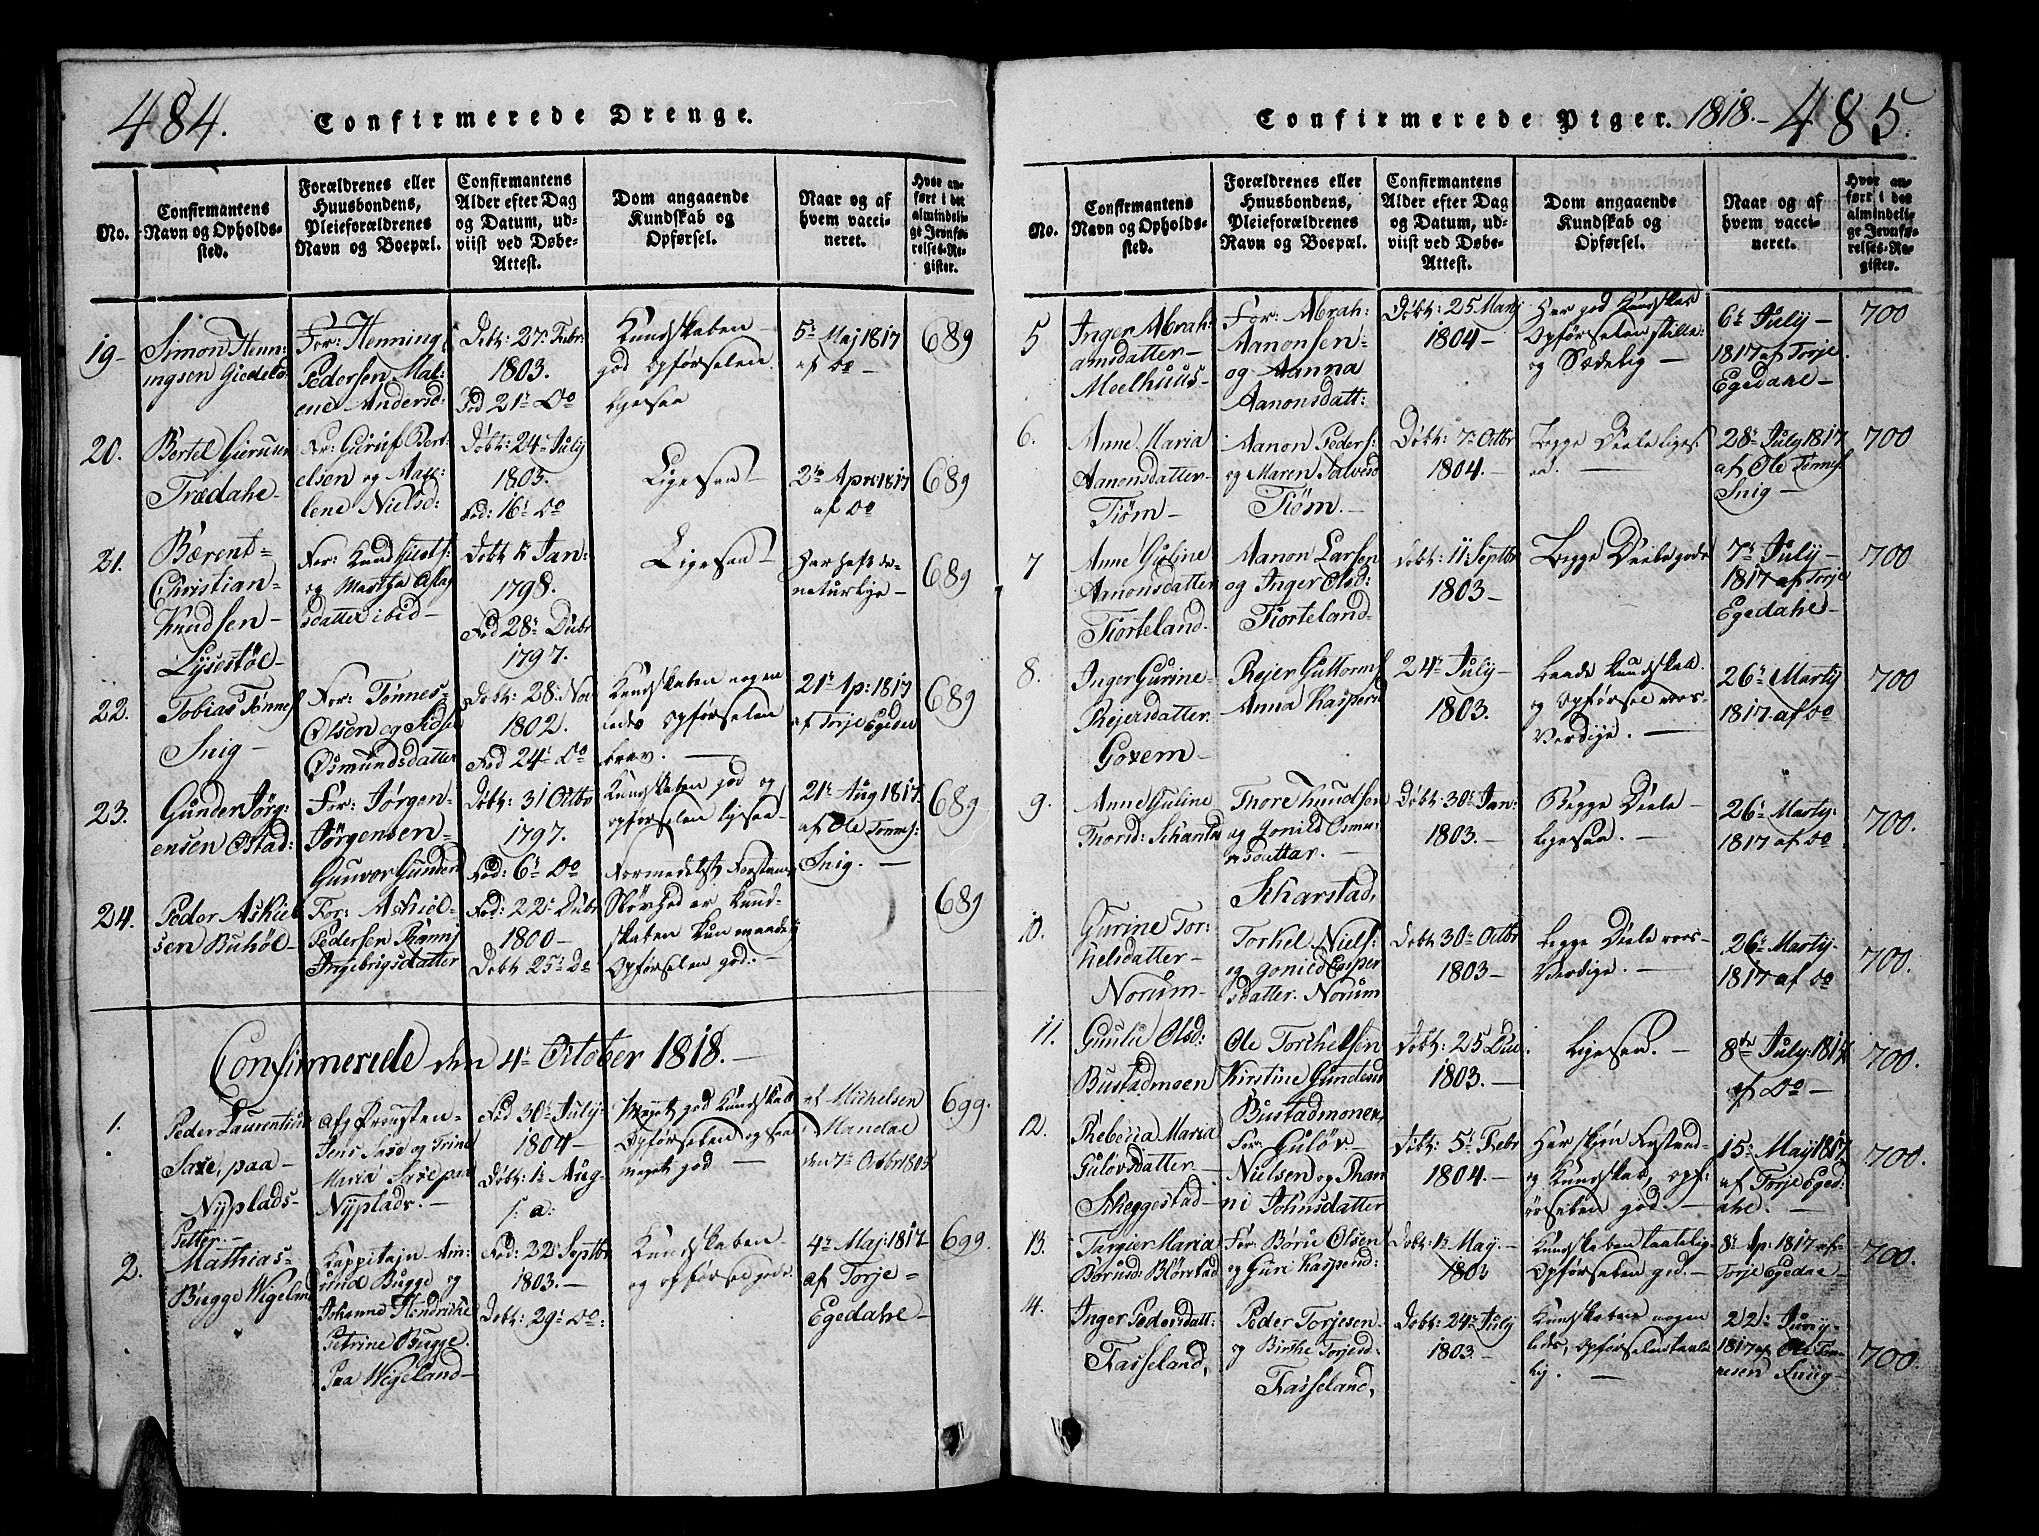 484.
Confirmerede Drenge.
No.
Confirmantens
Navn og Opholds-
sted.
Forældrenes eller
Huusbondens,
Pleieforældrenes
Navn og Boepæl.
Confirmantens
Alder efter Dag
og Datum, ud-
viist ved Døbe-
Attest.
Dom angaaende
Kundskab og
Opførsel.
Naar og af
hvem vacci-
neret.
Hvor an-
ført i det
almindeli-
ge Jevnfø-
relses-Re-
gister.
19-
Simon Hen-
ingsen
For: Henning
Pedersen Mal-
ene Andersd:
Døbt: 27: Febr:
1803.
Fød 21: Do
Kundskaben
god Opførselen
ligesaa
5: Maj 1817
af Do
689
20.
Bertel
Trædahl
Bert-
elsen og
lene Nielsd:
Døbt: 24: July
1803.
Fød: 16: Do
Ligesaa
2: Apr: 1817
af Do
689
21.
Bærent-
Christian-
Knudsen-
Lysestøl-
For: Knud
og Martha Aslag
sdatter ibid-
Døbt 1: Jan:
1798.
Fød 28: Dcbr
1797.
Ligesaa
naturlige-
689
22.
Tobias Tønnes
Snig-
For: Tønnes-
Olsen og
Osmundsdatter
Døbt: 28: Nov
1802.
Fød 24: Do
Kundskaben nogen
leds Opførselen
brav.
21: Ap: 1817
af Torje
689
23.
Gunder Jørg-
ensen Østad:
For: Jørgen-
Jørgensen-
Gunvor Gunders
Døbt: 31 Octbr
1797.
Fød: 6: Do
Kundskaben god og
Opførselen ligesaa
21: Aug 1817
af Ole Tønnes:
Snig.
689
24.
Peder Askiel
sen Buhøl-
For: Askiel-
Pedersen
Ingebrigsdatter
Fød: 22: Dcbr
1800-
Døbt 25: Do
Formedelst Forstand
Sløvhed er Kund-
skaben kun maadelig
Opførselen god.
689
Confirmerede den 4: October 1818.-
1.
Peder Laurentius
paa-
Nyplads-
Jens og Trine
Maria paa
Nyplads.-
Fød 30: July
1804-
Døbt: 1: Aug-
s. a:
Meget god Kundskab
Opførselen ogsaa
meget god
af Michelsen
i Mandal
den 7: Octbr 1805
699.
2.
Petter-
Mathias-
Bugge Wigeland
Kappitajn Am-
und Bugge og
Johanne Hendrikke
Petrine Bugge
Paa Wigeland-
Fød: 22: Septbr
1803.-
Døbt: 29: Do:
Kundskaben-
og Opførsel gode.
4: Maj: 1817
af Torje-
Egedahl-
699.
Confirmerede Piger. 1818.- 485.
No.
Confirmantens
Navn og Opholds-
sted.
Forældrenes eller
Huusbondens,
Pleieforældrenes
Navn og Boepæl.
Confirmantens
Alder efter Dag
og Datum, ud-
viist ved Døbe-
Attest.
Dom angaaende
Kundskab og
Opførsel.
Naar og af
hvem vacci-
neret.
Hvor an-
ført i det
almindeli-
ge Jevnfø-
relses-Re-
gister.
5
Inger Abrah-
amsdatter-
Moelhuus-
For: Abrah:
Aanonsen-
og Aanna
Aanonsdatt:
Døbt: 25 Marty
1804-
Har god Kundskab
Opførselen stille
og Sædelig-
6: July-
1817 af Torje
Egedahl-
700
6.
Anne Maria
Aanonsdatter-
Tiøm-
Aanon Peders:
og Maren Salvesd
Tiøm.-
Døbt: 7: Octbr
1804.-
Begge Deele liges
aa.-
28: July 1817
af Ole Tønnes
Snig-
700
7
Anne Guline
Amonsdatter
Tiorteland-
Aanon Larsen
og Inger Olsd:
Tiorteland-
Døbt: 11: Septbr
1803-
Begge Deele gode
7: July-
1817 af Torje
Egedahl-
700
8.
Inger Gurine-
Reiersdatter-
Govem-
Rejer Guttorms
Anna Kaspersd
24: July-
1803.
Baade Kundskab
og Opførsel roes-
Verdige.-
26: Marty
1817 af Do
700
9.
Anne Guline
Thorsd: Skarstad
Thore Knudsen
og Gonild Osmu-
ndsdatter.-
Skarstad,
Døbt: 30: Jan:
1803.-
Begge Deele-
ligesaa.-
26: Marty:
1817 af Do
700.
10.
Gurine Tor-
kelsdatter-
Norum-
Torkel Niels:
og Gonild Esper
sdatter. Norum
Døbt 30: Octbr
1803-
Begge Deele roes-
Verdige.-
26: Marty-
1817 af Do
700.
11.
Gunild Olsd:
Bustadmoen
Ole Torkelsen
Kirstine Gunders
Bustadmonen,
Døbt: 25 Dec.
1803.-
Ligesaa.-
8de July: 1817
af Do-
700.
12.
Rebecca Maria
Guløvsdatter-
Skeggestad-
For: Guløv-
Nielsen og Ran-
ni Johnsdatter
Døbt: 5: Febr
1804.-
Har skjøn Forstand-
og Kundskab, opf:
ørselen god.-
15: May 1817
af Torje Eged
ahl.-
700.
13.
Targier Maria
Børusd: Blørstad
For: Børu Olsen
og Guri Kaspersd:
Døbt: 1: May-
1803
Kundskaben taalelig
Opførselen god.-
8: Ap: 1817 af
Torje Egedal-
700.
14.
Inger Pedersdatt:
Fasseland,
Peder Torjesen
og Birthe Torjesd:
Fasseland,
Døbt: 24: July
1803.-
Kundskaben nogen
leds, Opførselen taale
lig.-
22: Juny-
1817 af Ole Tøn-
nesen Snig-
700.